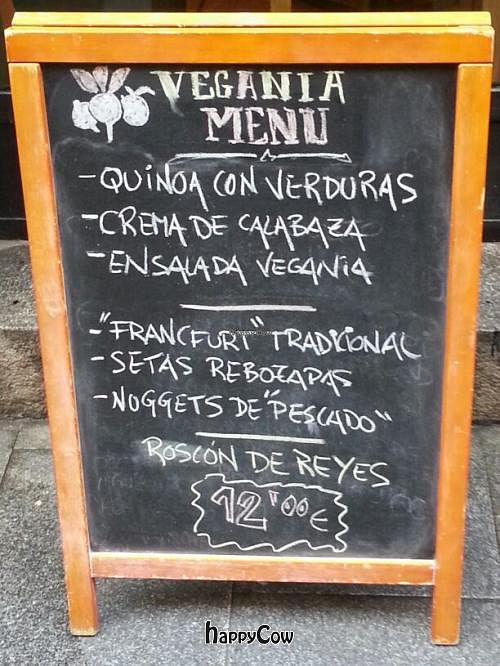 VEGANIA
MENU
-QUINOA CON VERDURAS
-CREMA DE CALABAZA
-ENSALADA VEGANIA
-"FRANCFURT" TRADICIONAL
-SETAS REBOZADAS
-NOGGETS DE "PESCADO"
ROSCÓN DE REYES
12'00€
HappyCow